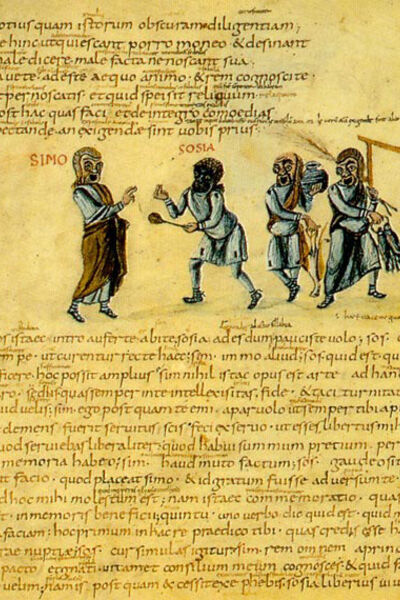 otius quam istorum obscuram diligentiam;
e hinc ut quiescant porro moneo & desinant
male dicere male facta ne noscant sua;
auete adeste aequo animo & rem cognoscite
t pernoscatis et quid spei sit reliquum
ost hac quas faci et de integro comoedias
pectande an exigendae sint uobis prius
SIMO SOSIA
os istaec intro auferte abite; sosia ades dum paucis te uolo; sos
em pe ut curentur recte haec; sim immo aliud; sos quid est qu
ficere hoc possit amplius sim nihil istac opus est arte ad han
ro sed iis quas semper in te intellexi sitas fide & taciturnita
uid uelis; sim ego postquam te emi aparuolo ut semper tibi ap
demens fuerit seruitus scis feci ex seruo ut esses libertus mih
uod seruiebas liberaliter; quod habui summum pretium per
memoria habeo; sim haud muto factum; sos gaudeo si t
it facio quod placeat simo & id gratum fuisse aduersum te
d hoc mihi molestum est; nam istaec commemoratio quas
st inmemoris benefici; quin tu uno uerbo dic quid est quod m
a faciam; hoc primum in hac re praedico tibi quas credis esse ha
rae nuptiae; sos cur simulas igitur; sim rem omnem aprinc
pacto & gnati uitam et consilium meum cognosces & quid fa
uelim; nam is post quam excessit ex ephebis sosia liberius ui